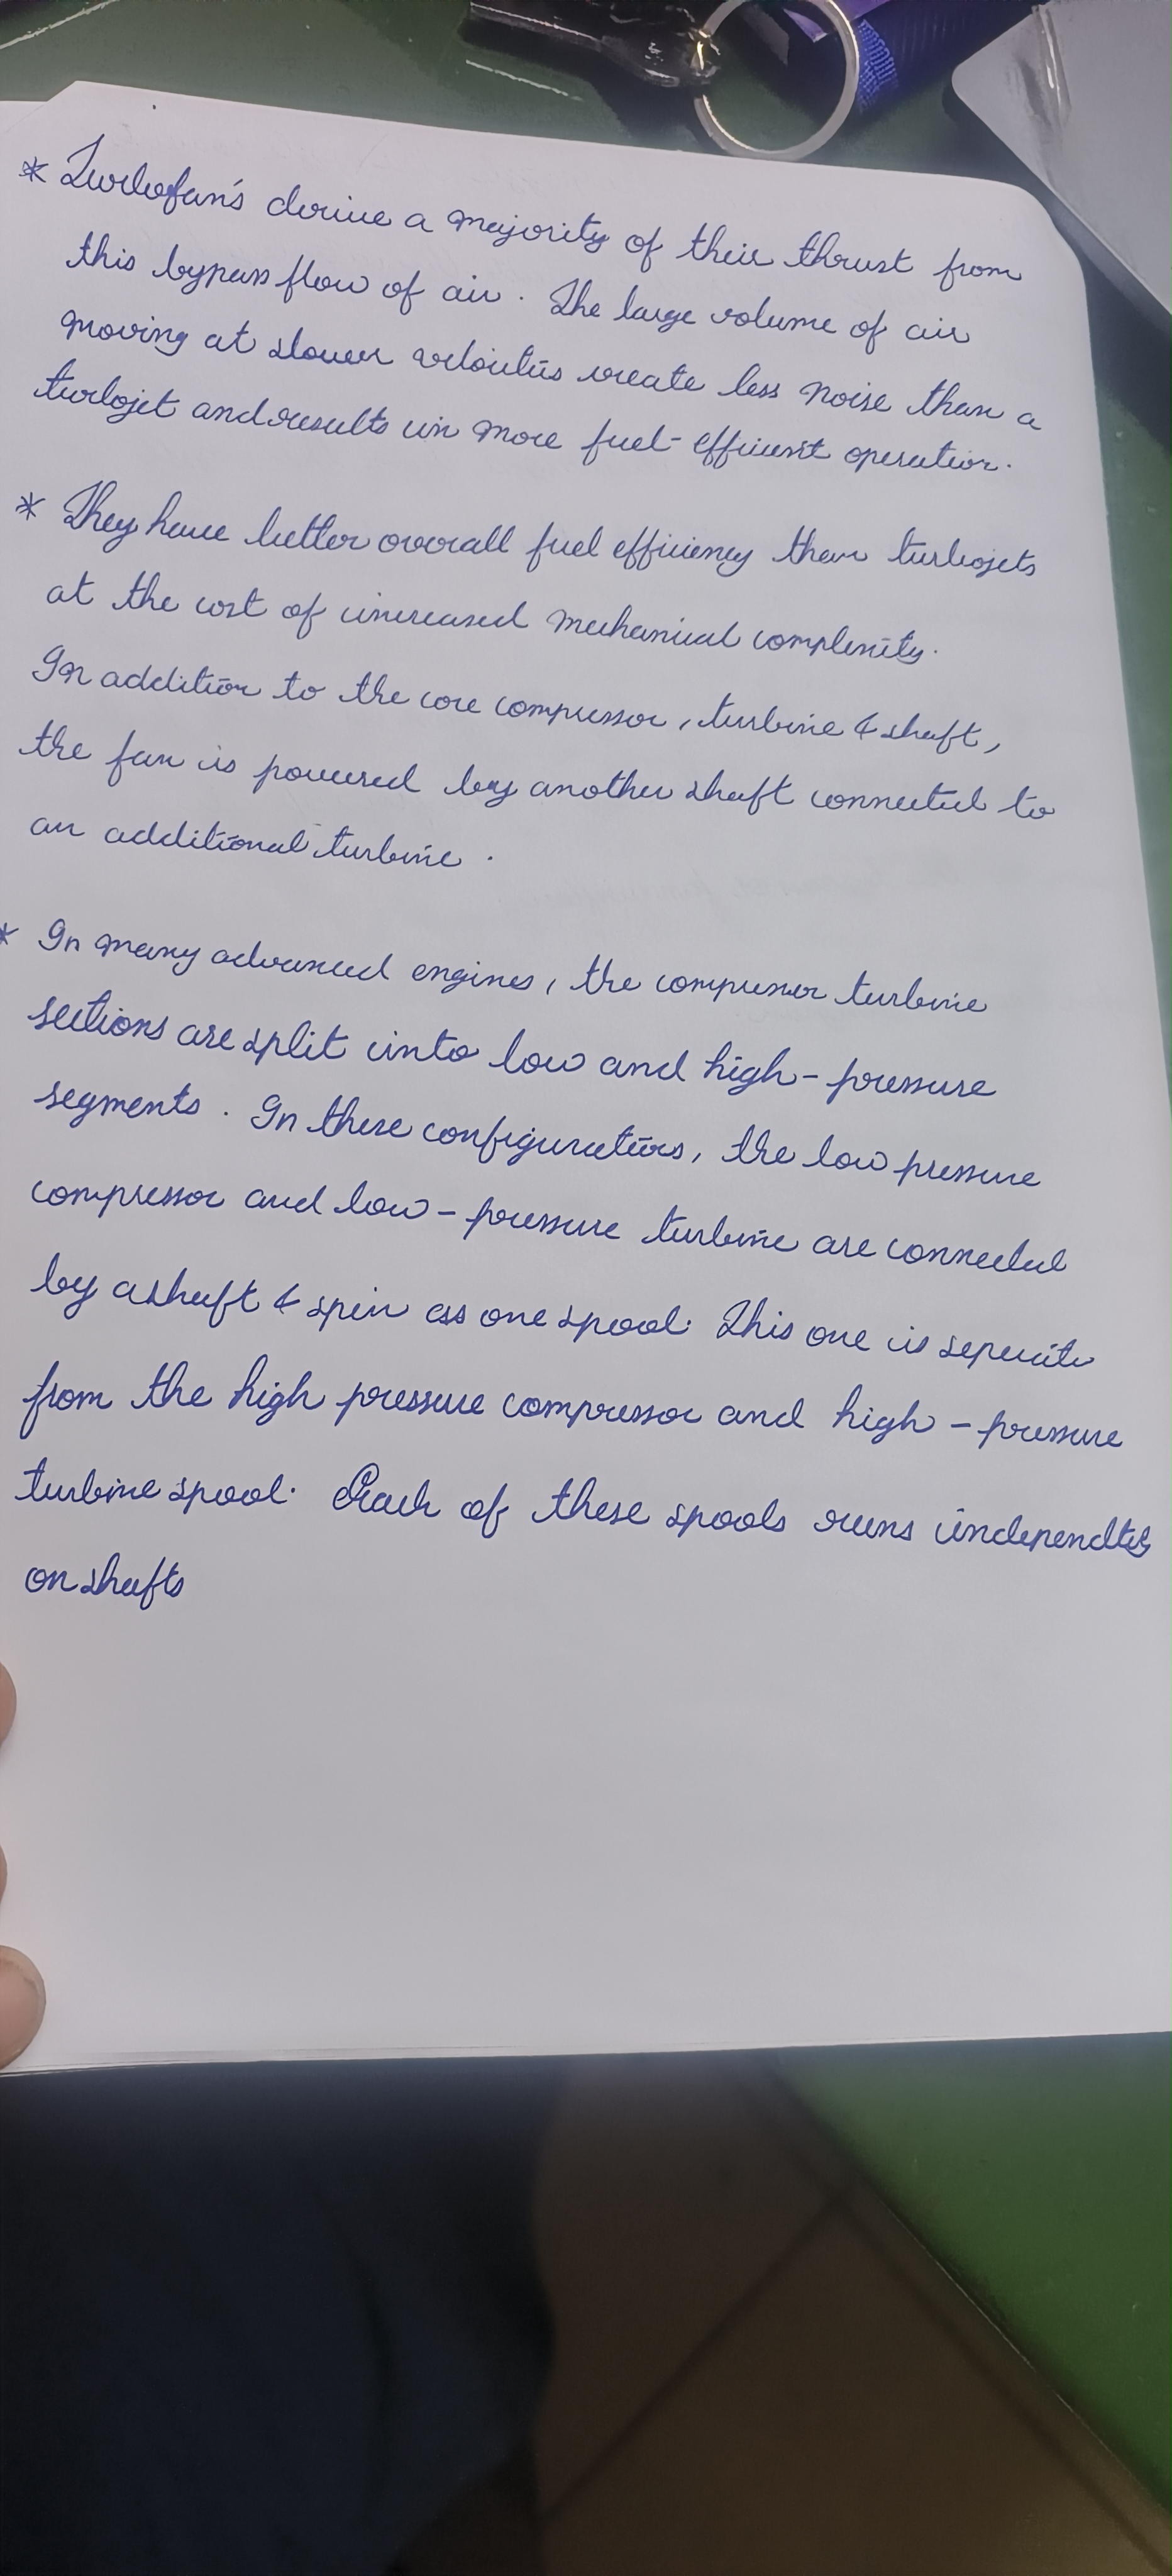 * Turbofan's derive a majority of their thrust from
this bypass flow of air. The large volume of air
moving at slower velocities create less noise than a
turbojet and results in more fuel-efficient operation.
* They have better overall fuel efficiency than turbojets
at the cost of increased mechanical complexity.
In addition to the core compressor, turbine & shaft,
the fan is powered by another shaft connected to
an additional turbine.
* In many advanced engines, the compressor turbine
sections are split into low and high-pressure
segments. In these configurations, the low pressure
compressor and low-pressure turbine are connected
by a shaft & spin as one spool. This one is seperate
from the high pressure compressor and high-pressure
turbine spool. Each of these spools runs independtly
on shafts